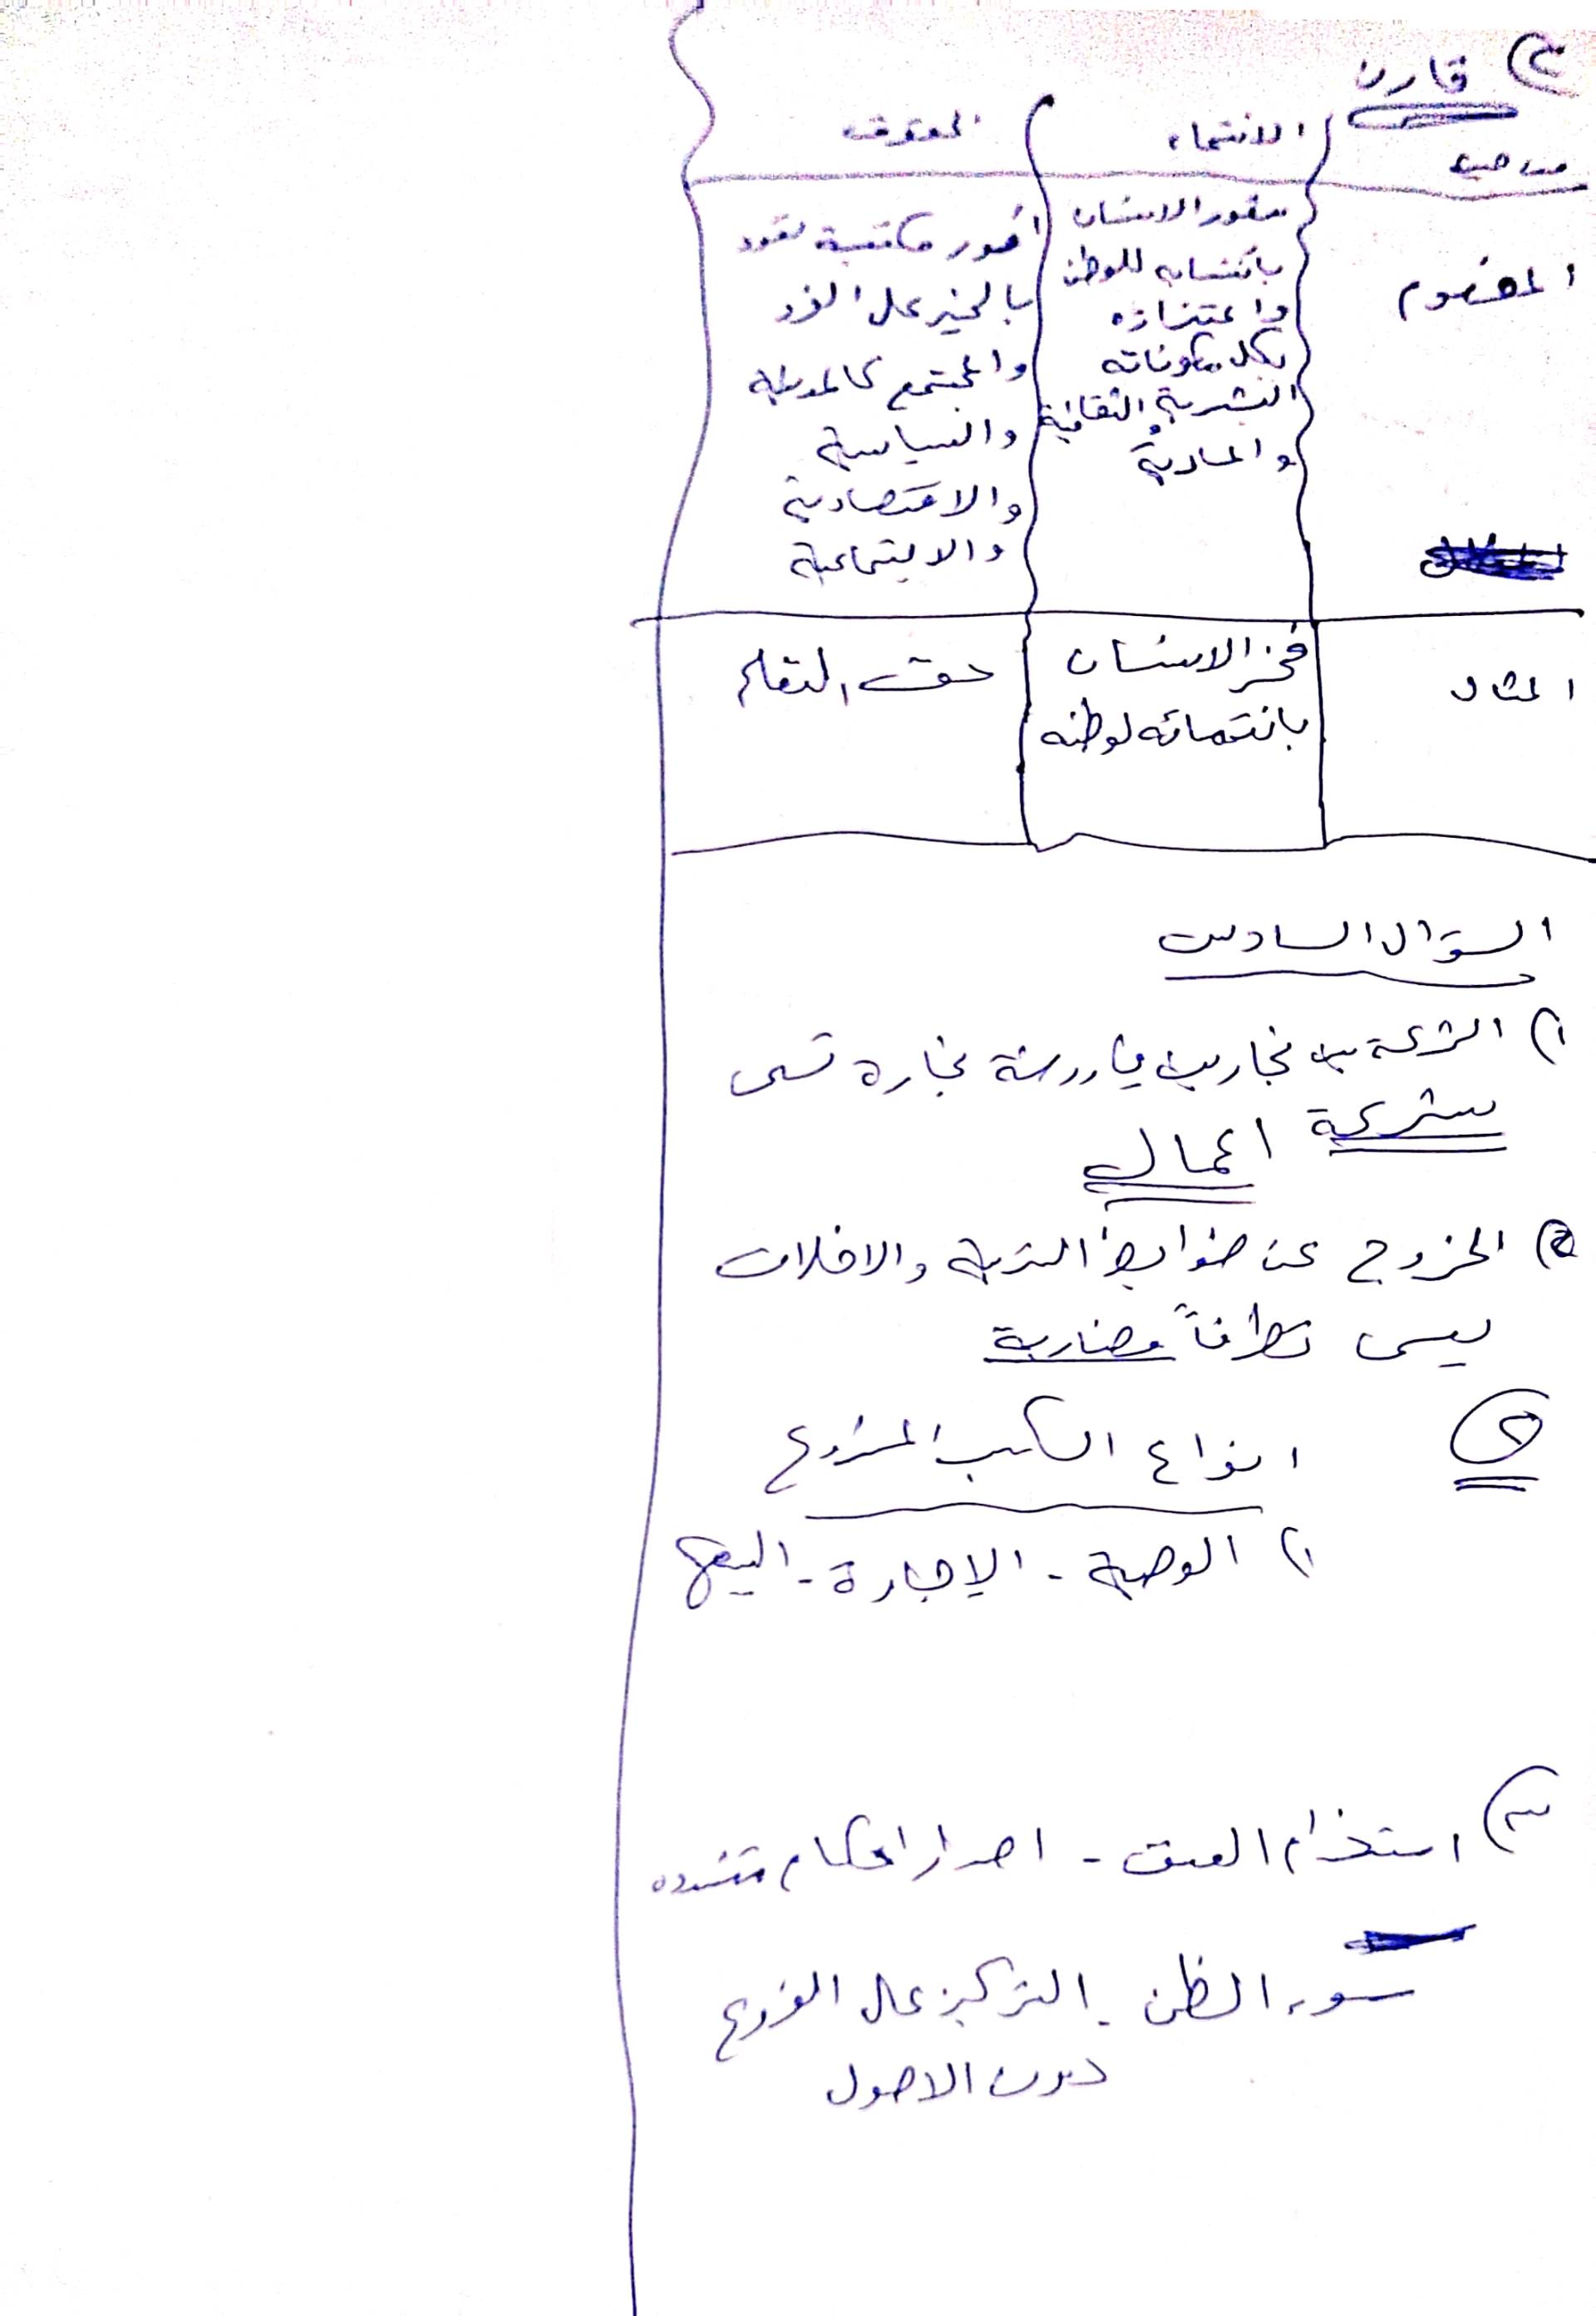 ٢) قارن
من حيث الانتماء الحقوق
المفهوم
شعور الانسان
بانتسابه للوطن
واعتزازه
بكل مكوناته
البشرية الثقافية
والمادية
امور مكتسبة تعود
بالخير على الفرد
والمجتمع كالمدنية
والسياسية
والاقتصادية
والاجتماعية
المثال
فخر الانسان
بانتمائه لوطنه
حق التعلم
السؤال السادس
١) الشركة بين نجارين في ورشة نجارة تسمى
شركة اعمال
٢) الخروج عن ضوابط التربية والاخلاق
يسمى تطرفاً مضاربة
٢
انواع الكسب المشروع
١) الوصية - الإجارة - البيع
٣) استخدام العنف - اصدار احكام متشدده
سوء الظن - التركيز على الفروع
دون الاصول